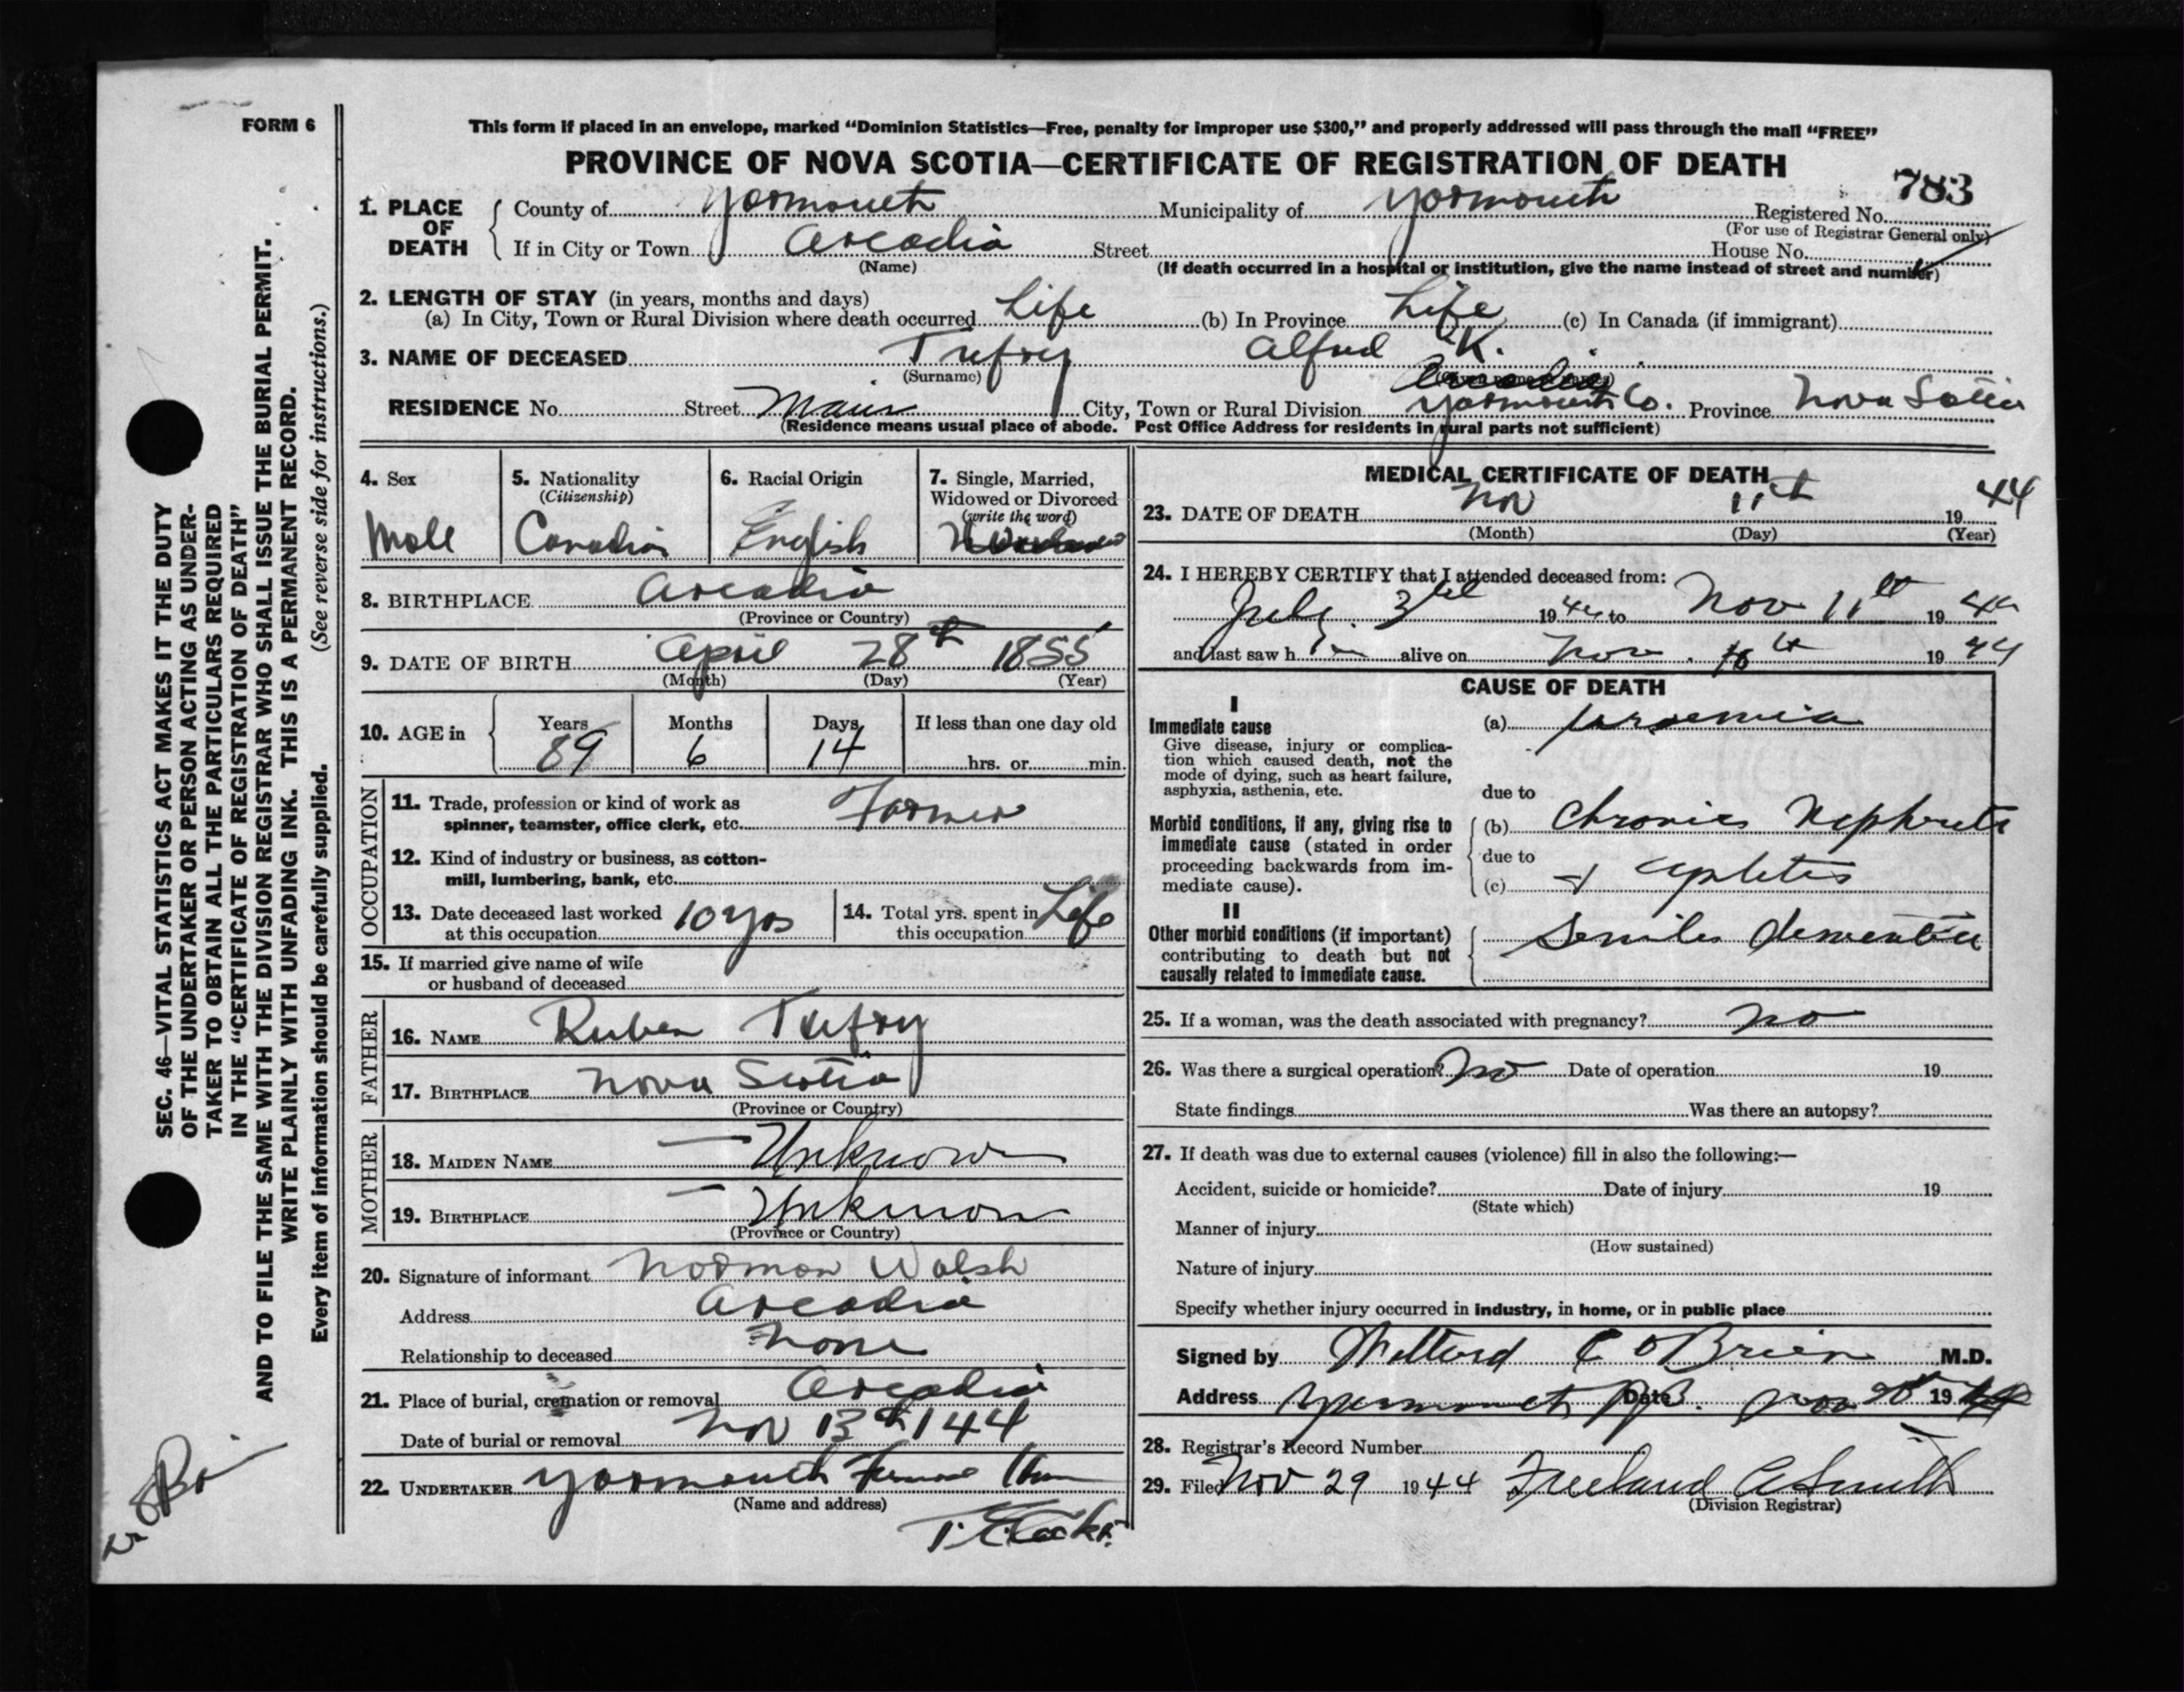 FORM 6
This form if placed in an envelope, marked “Dominion Statistics—Free, penalty for improper use $300,” and properly addressed will pass through the mail “FREE”
PROVINCE OF NOVA SCOTIA—CERTIFICATE OF REGISTRATION OF DEATH
783
1. PLACE OF DEATH County of Yarmouth Municipality of Yarmouth Registered No.
(For use of Registrar General only)
If in City or Town Arcadia Street House No.
(Name) (If death occurred in a hospital or institution, give the name instead of street and number)
2. LENGTH OF STAY (in years, months and days)
(a) In City, Town or Rural Division where death occurred Life (b) In Province Life (c) In Canada (if immigrant)
3. NAME OF DECEASED Trefry Alfred K.
(Surname)
RESIDENCE No. Street Main City, Town or Rural Division Arcadia Yarmouth Co. Province Nova Scotia
(Residence means usual place of abode. Post Office Address for residents in rural parts not sufficient)
4. Sex 5. Nationality 6. Racial Origin 7. Single, Married,
(Citizenship) Widowed or Divorced
(write the word)
Male Canadian English
8. BIRTHPLACE Arcadia
(Province or Country)
9. DATE OF BIRTH April 28th 1855
(Month) (Day) (Year)
10. AGE in Years Months Days If less than one day old
89 6 14 hrs. or min.
OCCUPATION
11. Trade, profession or kind of work as
spinner, teamster, office clerk, etc. Farmer
12. Kind of industry or business, as cotton-
mill, lumbering, bank, etc.
13. Date deceased last worked
at this occupation 10 yrs
14. Total yrs. spent in
this occupation Life
15. If married give name of wife
or husband of deceased
FATHER
16. NAME Ruben Trefry
17. BIRTHPLACE Nova Scotia
(Province or Country)
MOTHER
18. MAIDEN NAME — Unknown
19. BIRTHPLACE — Unknown
(Province or Country)
20. Signature of informant Norman Walsh
Address Arcadia
Relationship to deceased None
21. Place of burial, cremation or removal Arcadia
Date of burial or removal Nov 13th/44
22. UNDERTAKER Yarmouth Funeral Home
(Name and address)
MEDICAL CERTIFICATE OF DEATH
23. DATE OF DEATH Nov 11th 1944
(Month) (Day) (Year)
24. I HEREBY CERTIFY that I attended deceased from:
July 3rd 1944 to Nov 11th 1944
and last saw him alive on Nov. 10th 1944
CAUSE OF DEATH
I
Immediate cause (a) uraemia
Give disease, injury or complica-
tion which caused death, not the
mode of dying, such as heart failure,
asphyxia, asthenia, etc.
due to
Morbid conditions, if any, giving rise to
immediate cause (stated in order
proceeding backwards from im-
mediate cause).
(b) Chronic Nephritis
due to
(c) +
II
Other morbid conditions (if important)
contributing to death but not
causally related to immediate cause.
Senile dementia
25. If a woman, was the death associated with pregnancy? no
26. Was there a surgical operation? No Date of operation 19
State findings Was there an autopsy?
27. If death was due to external causes (violence) fill in also the following:—
Accident, suicide or homicide? Date of injury 19
(State which)
Manner of injury
(How sustained)
Nature of injury
Specify whether injury occurred in industry, in home, or in public place
Signed by C O'Brien M.D.
Address Yarmouth Date Nov 19
28. Registrar's Record Number
29. Filed Nov 29 1944 Freeland A Smith
(Division Registrar)
SEC. 46—VITAL STATISTICS ACT MAKES IT THE DUTY
OF THE UNDERTAKER OR PERSON ACTING AS UNDER-
TAKER TO OBTAIN ALL THE PARTICULARS REQUIRED
IN THE “CERTIFICATE OF REGISTRATION OF DEATH”
AND TO FILE THE SAME WITH THE DIVISION REGISTRAR WHO SHALL ISSUE THE BURIAL PERMIT.
WRITE PLAINLY WITH UNFADING INK. THIS IS A PERMANENT RECORD.
Every item of information should be carefully supplied. (See reverse side for instructions.)